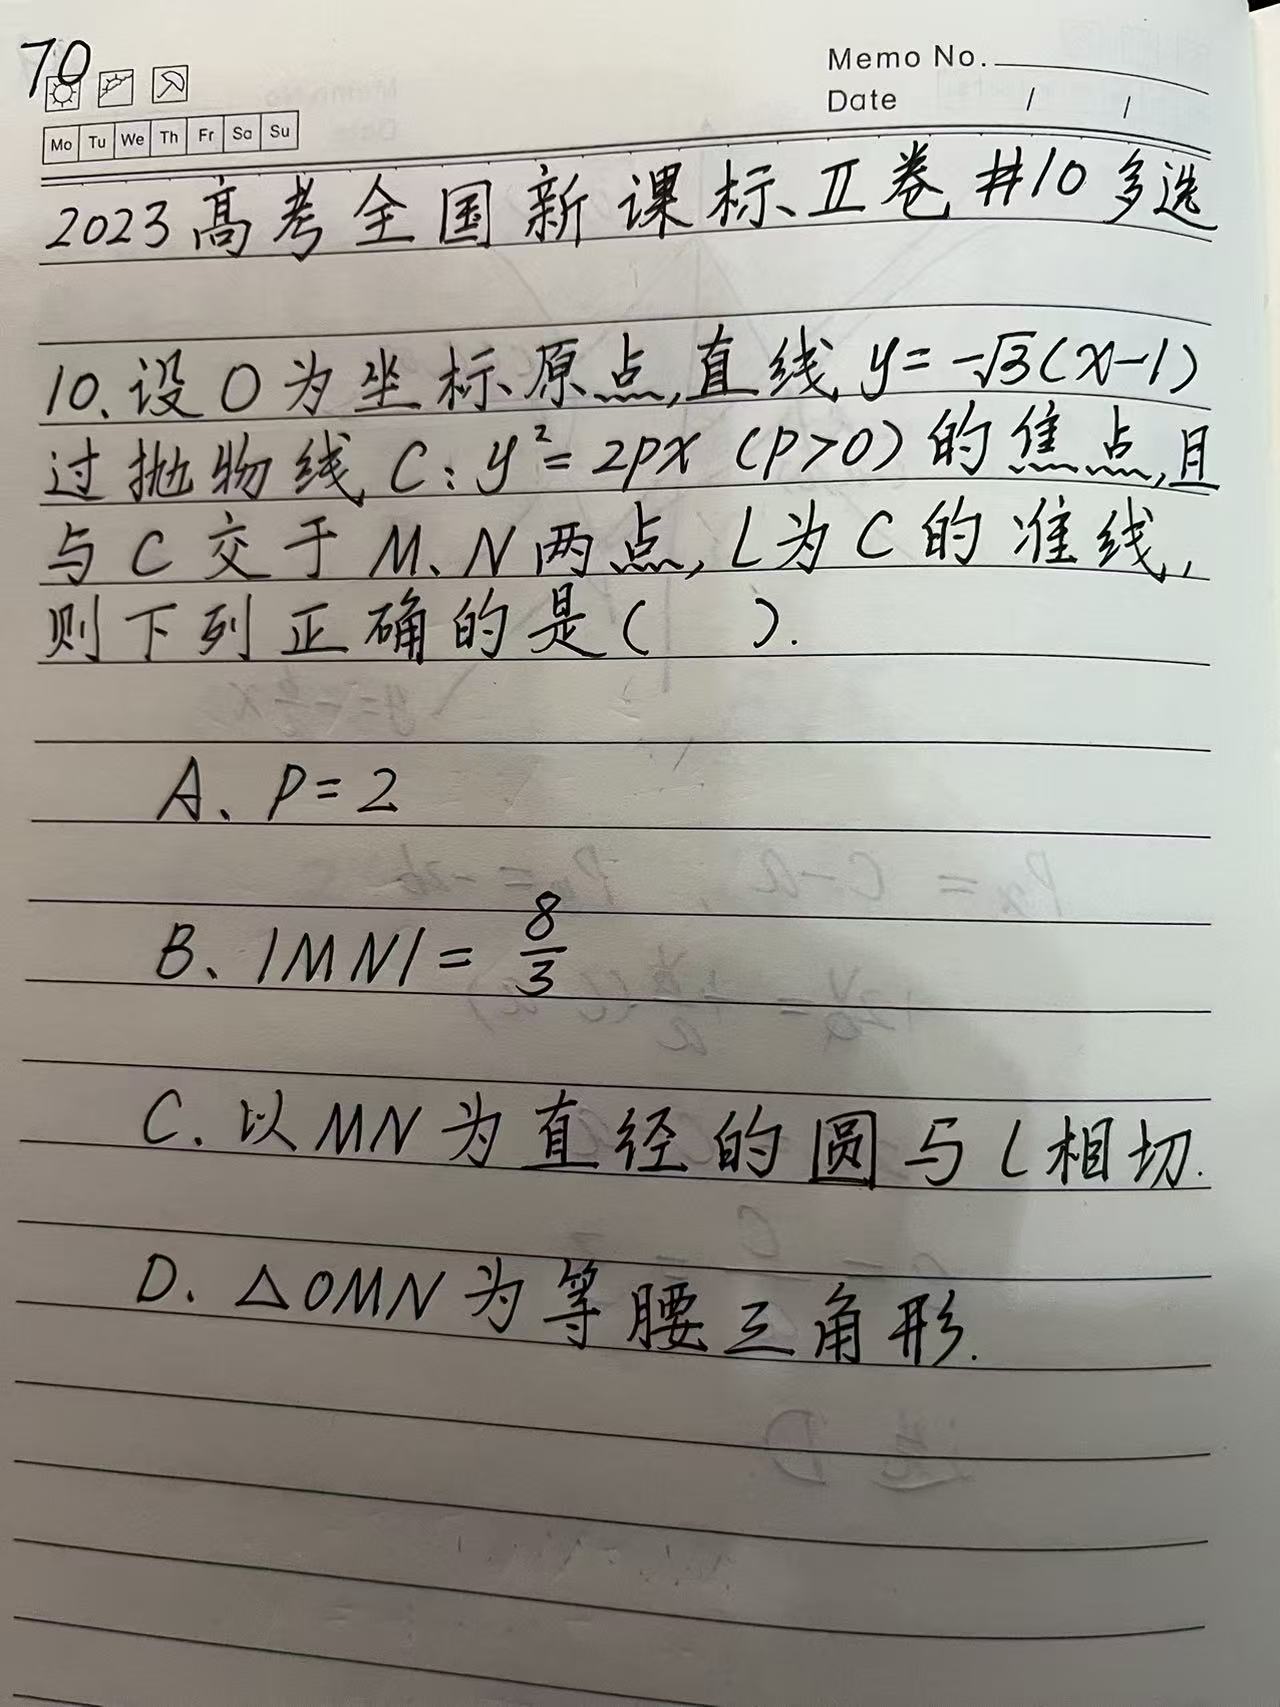 70
Memo No.
Date / /
Mo Tu We Th Fr Sa Su
2023高考全国新课标Ⅱ卷#10多选
10、设O为坐标原点,直线y=-√3(x-1)
过抛物线C:y²=2px(p>0)的焦点,且
与C交于M、N两点,L为C的准线,
则下列正确的是( ).
A、P=2
B、|MN|=8/3
C.以MN为直径的圆与L相切.
D、△OMN为等腰三角形.